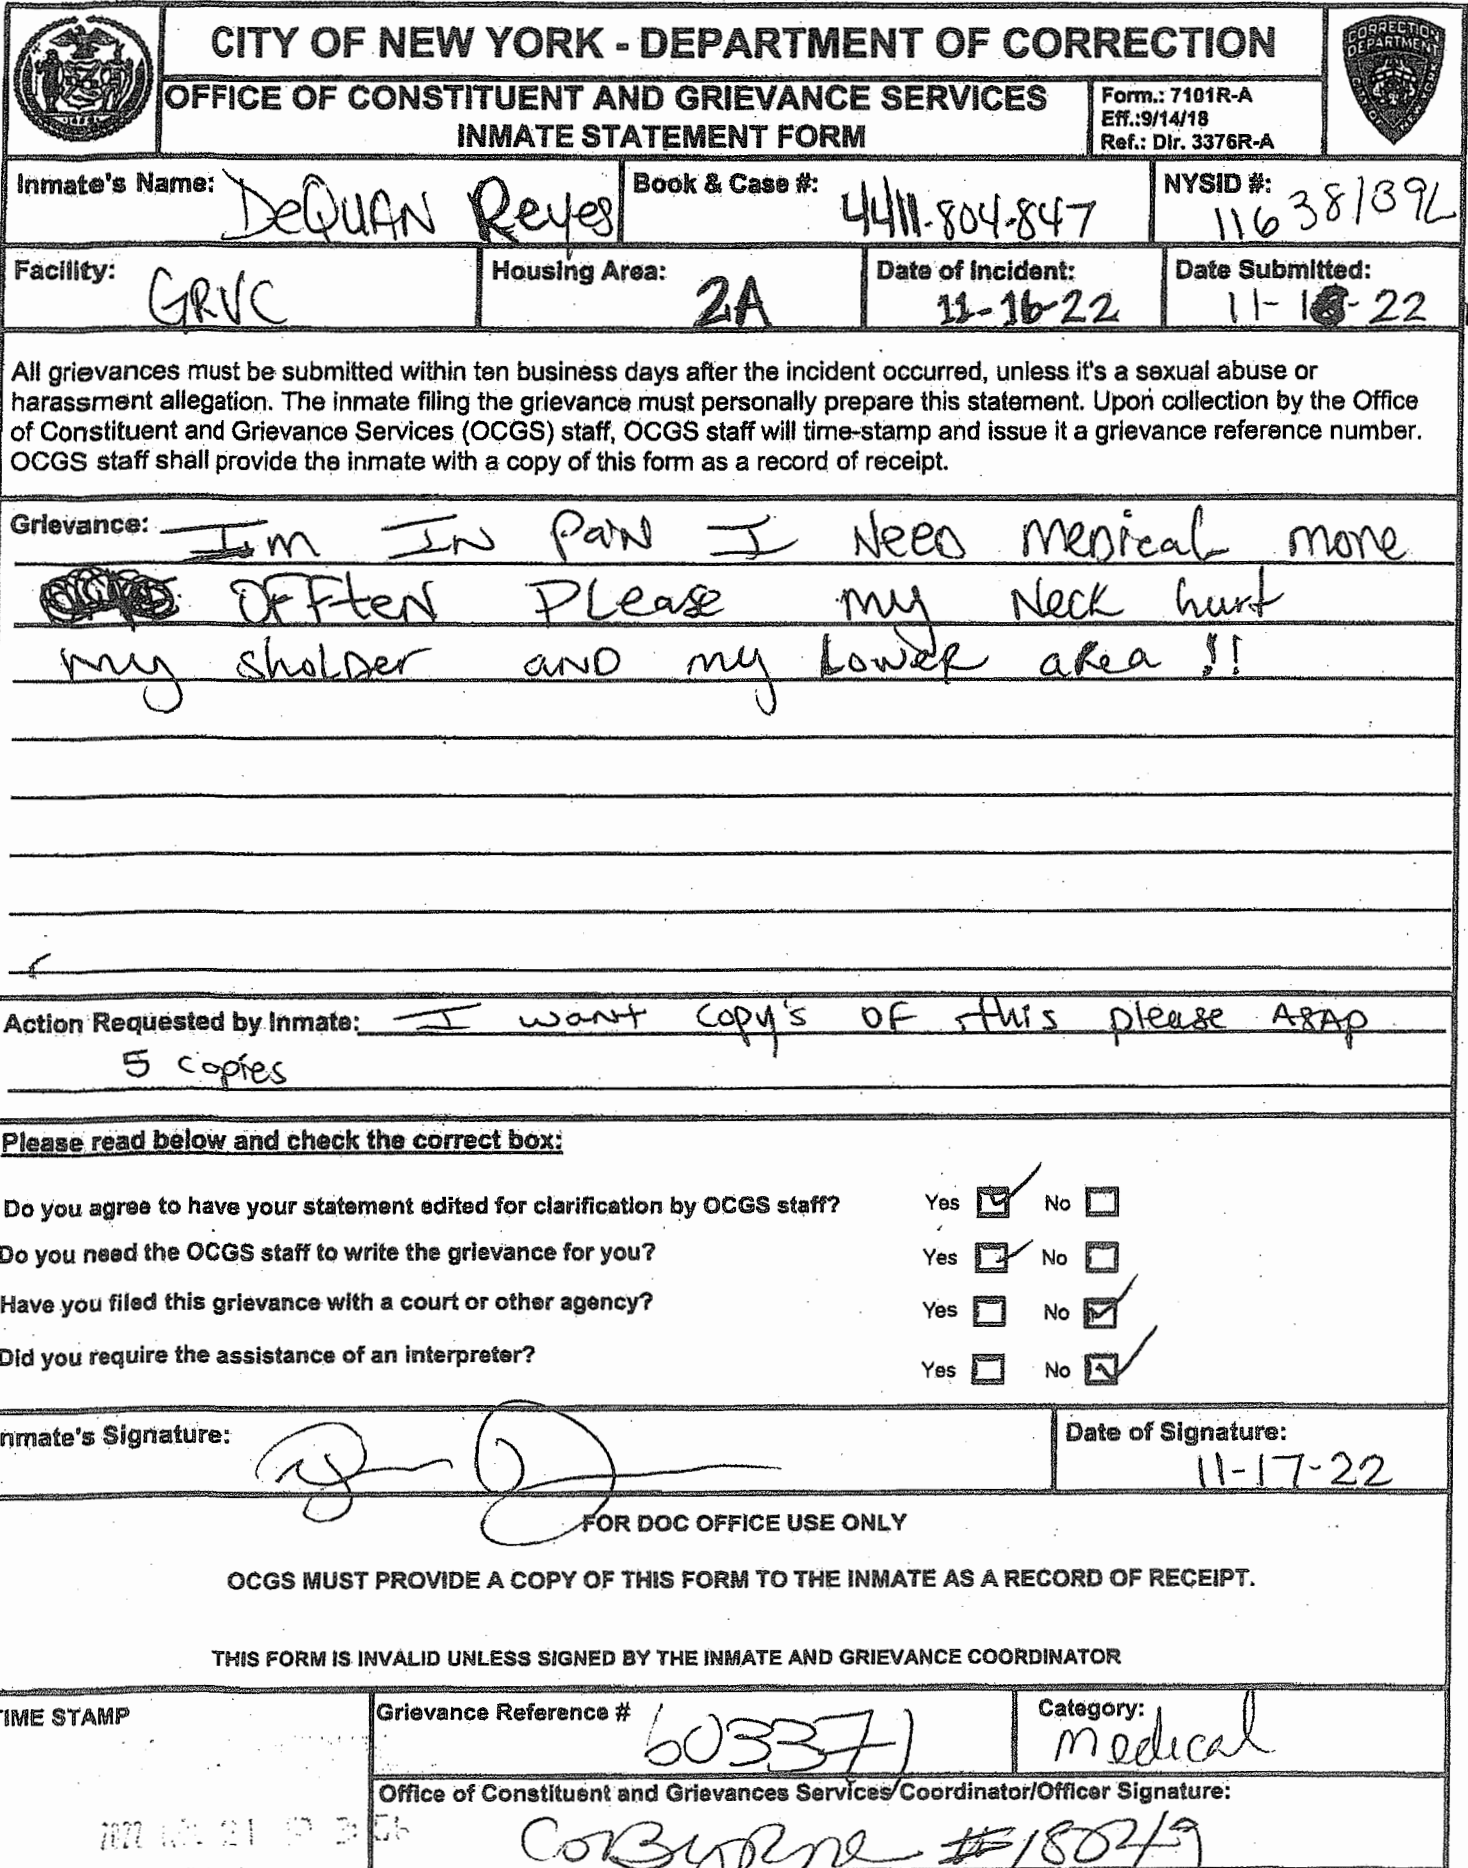 CITY OF NEW YORK - DEPARTMENT OF CORRECTION
CORRECTION DEPARTMENT
OFFICE OF CONSTITUENT AND GRIEVANCE SERVICES
INMATE STATEMENT FORM
Form.: 7101R-A
Eff.:9/14/18
Ref.: Dir. 3376R-A
Inmate's Name: DeQUAN Reyes
Book & Case #: 4411-804-847
NYSID #: 11638139L
Facility: GRVC
Housing Area: 2A
Date of Incident: 11-16-22
Date Submitted: 11-18-22
All grievances must be submitted within ten business days after the incident occurred, unless it's a sexual abuse or
harassment allegation. The inmate filing the grievance must personally prepare this statement. Upon collection by the Office
of Constituent and Grievance Services (OCGS) staff, OCGS staff will time-stamp and issue it a grievance reference number.
OCGS staff shall provide the inmate with a copy of this form as a record of receipt.
Grievance: Im IN PaiN I NeeD MeDical more
OFFteN PLease my Neck hurt
my sholDer aND my LoweR aRea !!
Action Requested by Inmate: I want copy's OF this please ASAP
5 copies
Please read below and check the correct box:
Do you agree to have your statement edited for clarification by OCGS staff? Yes No
Do you need the OCGS staff to write the grievance for you? Yes No
Have you filed this grievance with a court or other agency? Yes No
Did you require the assistance of an interpreter? Yes No
nmate's Signature:
Date of Signature: 11-17-22
FOR DOC OFFICE USE ONLY
OCGS MUST PROVIDE A COPY OF THIS FORM TO THE INMATE AS A RECORD OF RECEIPT.
THIS FORM IS INVALID UNLESS SIGNED BY THE INMATE AND GRIEVANCE COORDINATOR
TIME STAMP
Grievance Reference # 603371
Category: Medical
Office of Constituent and Grievances Services/Coordinator/Officer Signature:
2022 21
#18049